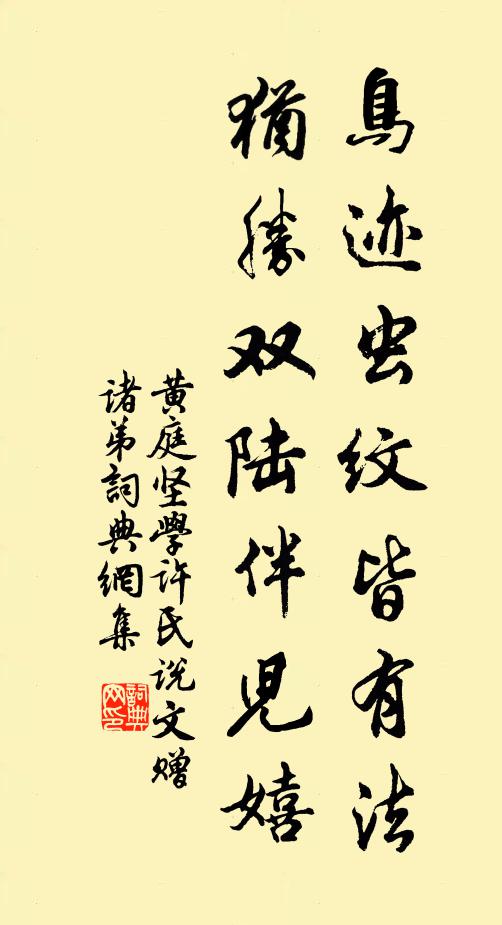 鳥迹虫紋皆有法
猶勝双陆伴児嬉
黄庭坚學许氏说文赠
诸弟詞典網集
詞典
网印